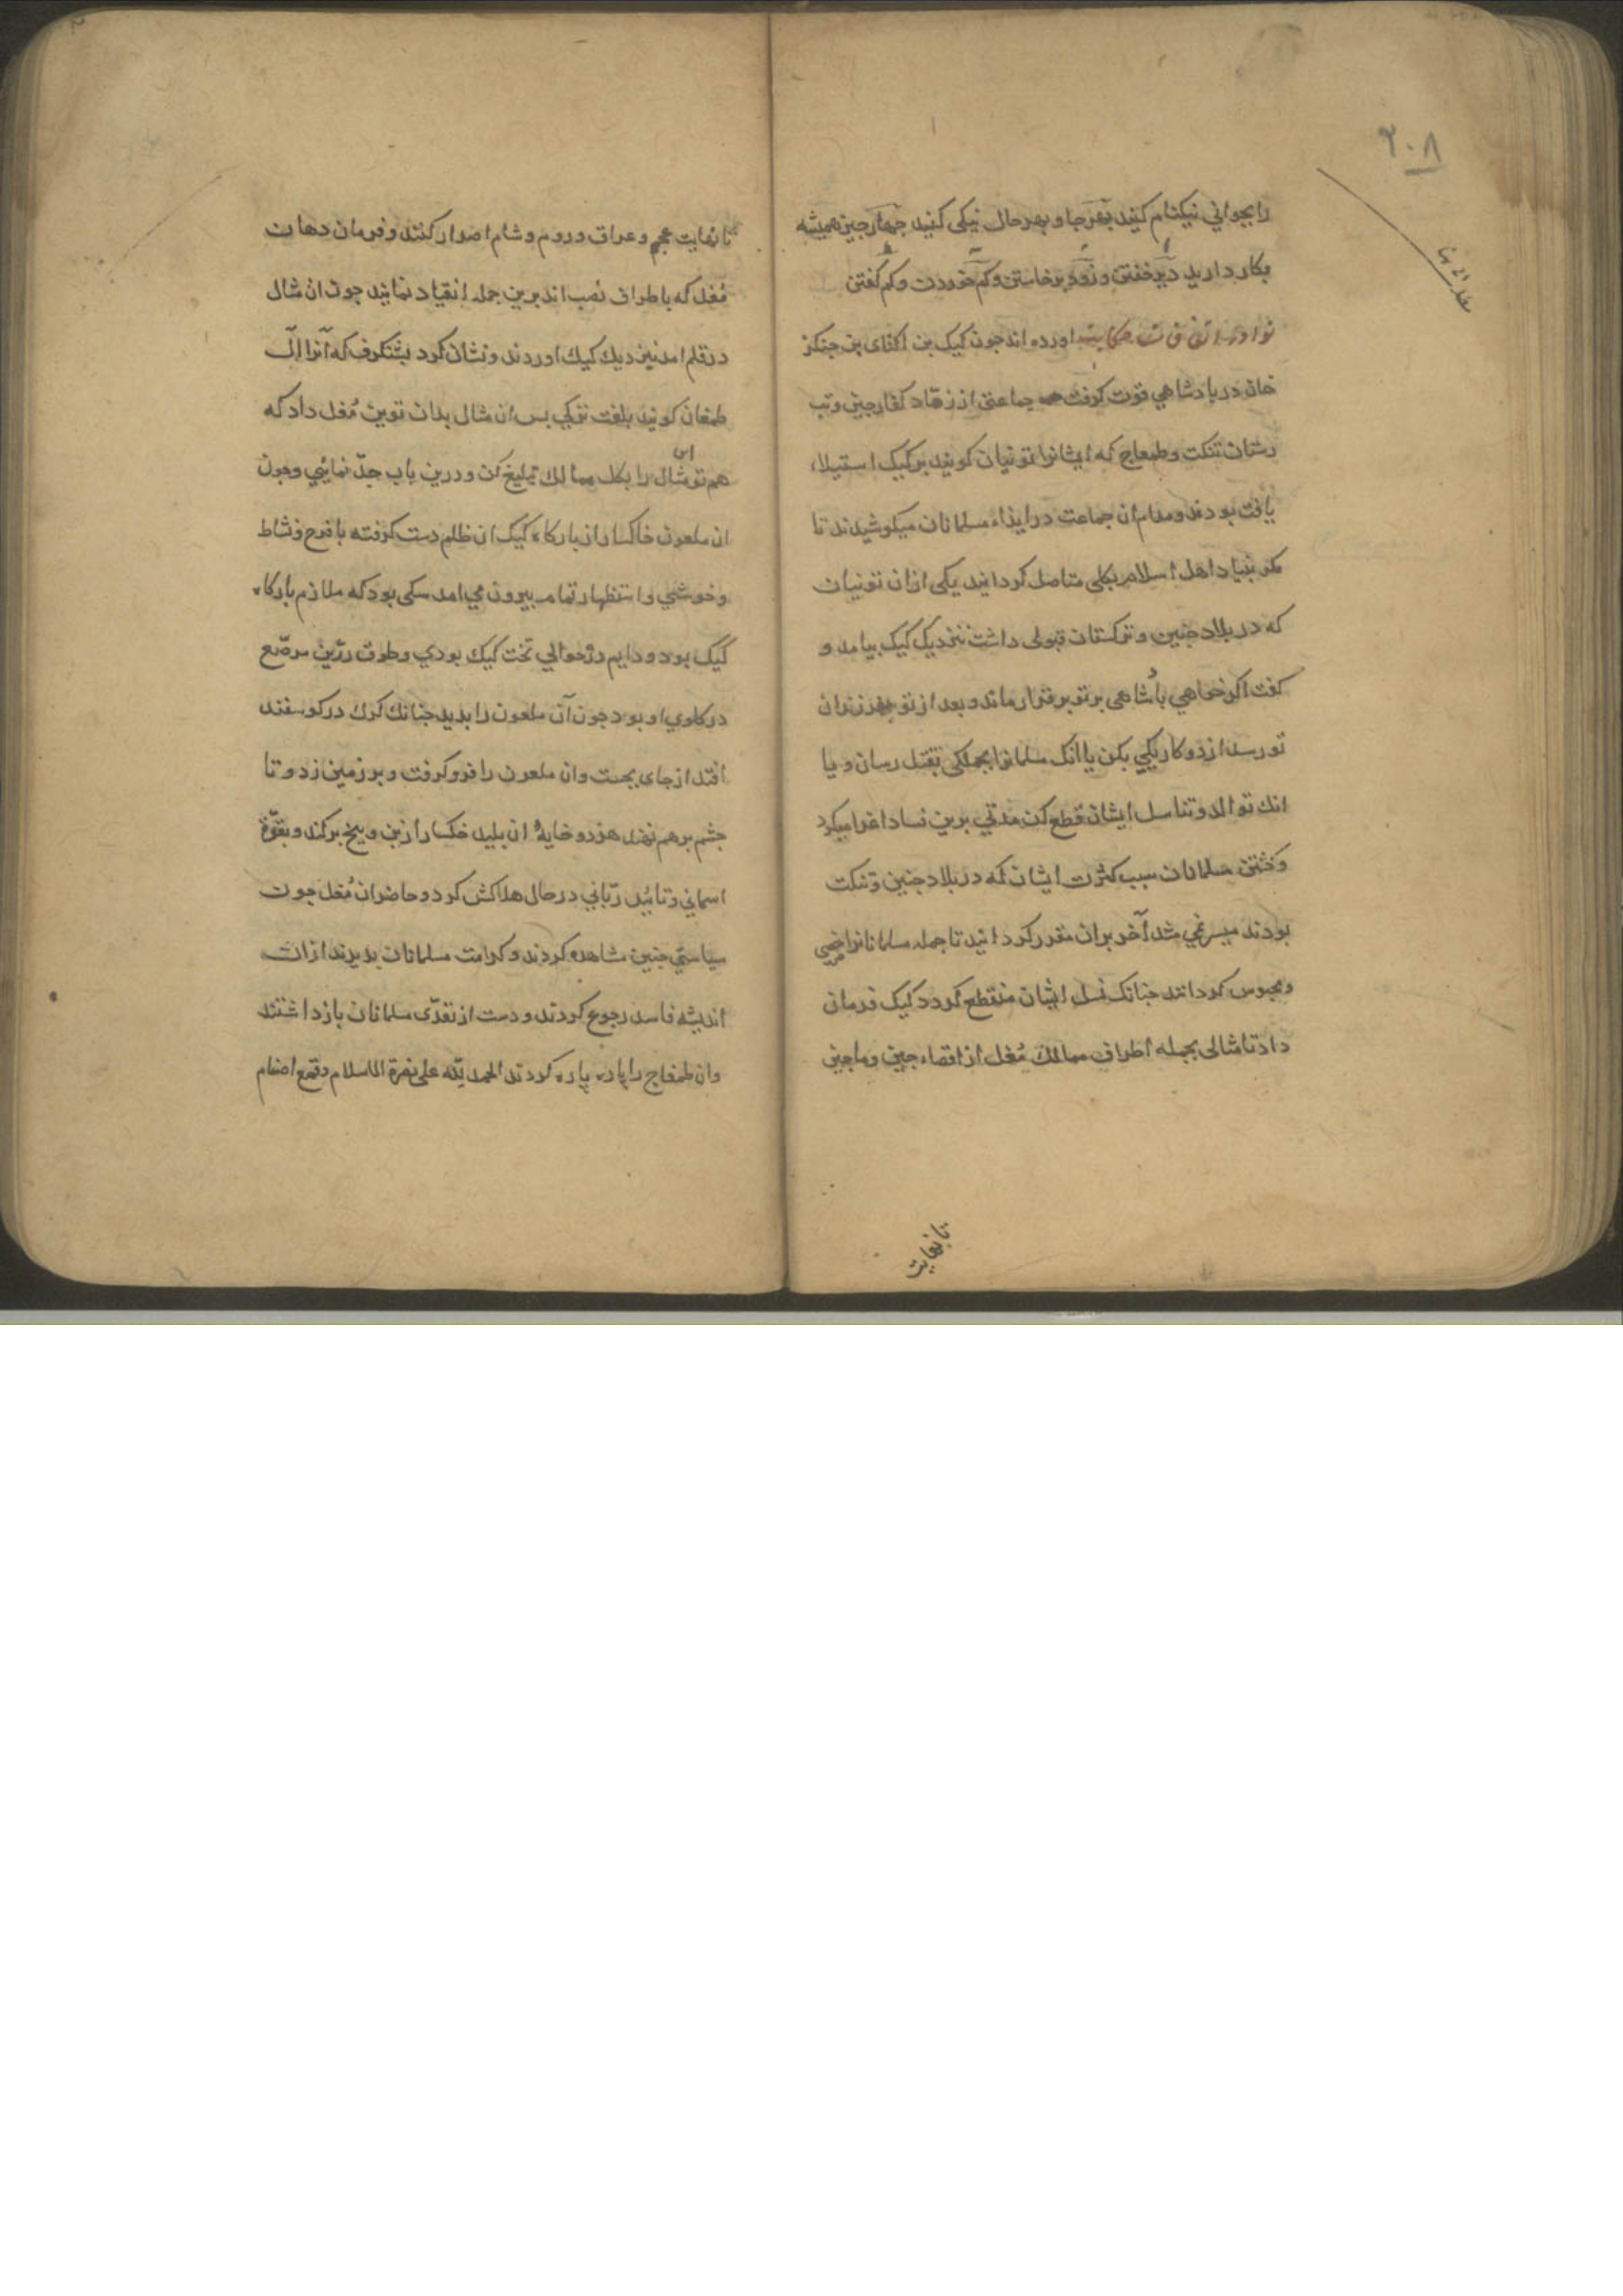 ۲۰۸
را بجوانی نیکنام کنید بهر جا و بهر حال نیکی کنید چهار چیز همیشه
بکار دارید دیر خفتن و زود برخاستن و کم خوردن و کم گفتن
نوادر حکایت اورده اند جون کیک بن اکتای بن جنکز
خان در بادشاهی قوت کرفت جماعتی از زهاد کفار جین و تب
رستان تنکت و طمغاج که ایشانرا تونیان کویند بر کیک استیلاء
یافته بودند و مدام ان جماعت در ایذاء مسلمانان میکوشیدند تا
مکر بنیاد اهل اسلام بکلی متاصل کردانید یکی ازان تونیان
که در بلاد جنین و ترکستان قبولی داشت نزدیک کیک بیامد و
کفت اکر خواهی باشاهی بر تو برقرار ماند و بعد از تو بفرزندان
تو رسد از دو کار یکی بکن یا انک مسلمانرا بجملکی بقتل رسان و یا
انک توالد و تناسل ایشان قطع کن مدتی برین فساد اغرا میکرد
و کشتن مسلمانان سبب کثرت ایشان که در بلاد جنین و تنکت
بودند میسر نمی شد آخر بران مقرر کردانید تا جمله مسلمانانرا خصی
و مجبوس کردانند جنانک نسل ایشان منقطع کردد کیک فرمان
داد تا مثالی بجمله اطراف ممالک مُغل از اقصاء جین و ماجین
تا نهایت
تا نهایت عجم و عراق و روم و شام اصدار کنند و فرمان دهان
مُغل که باطراف نصب اند برین جمله انقیاد نمایند جون ان مثال
در قلم امد نزدیک کیک اوردند و نشان کرد بشنکرف که آنرا ال
طمغان کویند بلغت ترکی بس ان مثال بدان توین مُغل داد که
هم تو این مثال را بکل ممالک تبلیغ کن و درین باب جدّ نمایی و جون
ان ملعون خاکسار از بارکاه کیک ان ظلم دست کرفته با فرح و نشاط
و خوشی و استظهار تمام بیرون می امد سکی بود که ملازم بارکاه
کیک بود و دایم در حوالی تخت کیک بودی و طوق زرّین مرصّع
در کلوی او بود جون آن ملعون را بدید جنانک کرک در کوسفند
افتد از جای بجست و ان ملعون را فرو کرفت و بر زمین زد و تا
جشم بر هم نهند هر دو خایهٔ ان بلید خکسار از بن و بیخ برکند و بقوّة
اسمانی و تائید ربّانی در حال هلاکش کرد و حاضران مُغل جون
سیاستی جنین مشاهده کردند و کرامت مسلمانان بدیدند ازان
اندیشه فاسد رجوع کردند و دست از تعدّی مسلمانان باز داشتند
و ان طمغاج را پاره پاره کردند الحمد لله علی نصرة الاسلام و قمع اصنام